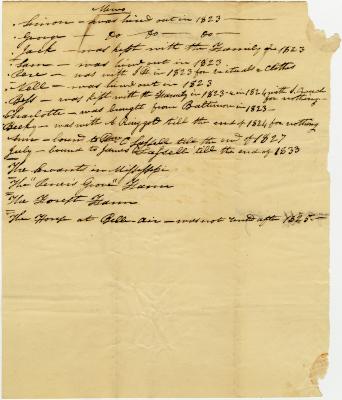 Memo
Simon — was hired out in 1823 —
George — Do — Do — Do —
Jack — was kept with the Family in 1823
Sam — was hired out in 1823
was with in 1823 for victuals & Cloths
Moll — was hired out in 1823
Bess — was kept with the Family in 1823 & in 1824 with
for nothing —
Charlotte — was brought from Baltimore in 1823 —
Becky — was with A Ringgold till the end of 1824 for nothing
bound to till the end of 1827
July — bound to James till the end of 1833
The Servants in Mississippi
The Grove" Farm
The Forest Farm
The House at Belle-air — was not rented after 1825 —